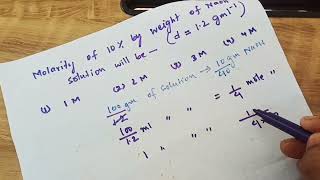 Molarity of 10% by weight of NaOH
solution will be – (d = 1.2 gml⁻¹)
(1) 1 M (2) 2 M (3) 3 M (4) 4 M
100 gm of solution → 10/40 gm NaOH
100/1.2 ml " " = 1/4 mole "
1 " " "